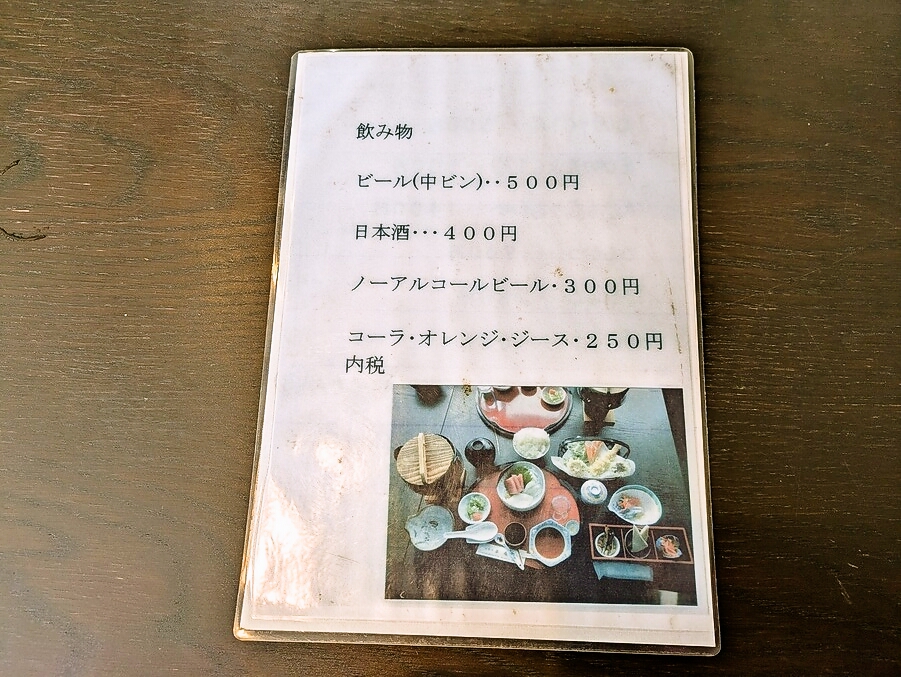 飲み物
ビール(中ビン)‥５００円
日本酒･･･４００円
ノーアルコールビール･３００円
コーラ･オレンジ･ジース･２５０円
内税